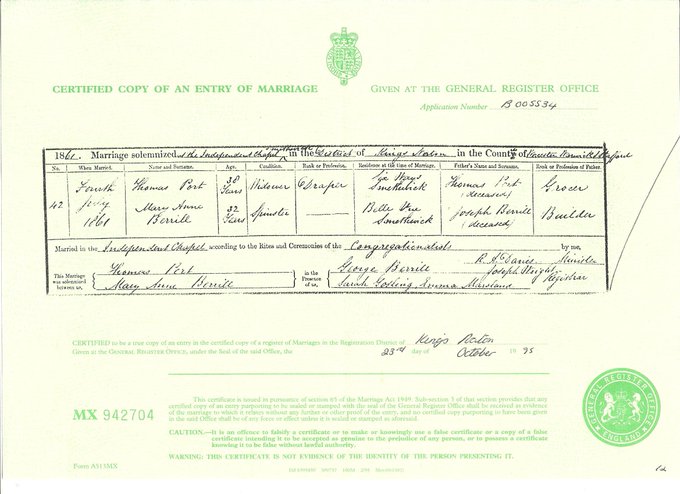 CERTIFIED COPY OF AN ENTRY OF MARRIAGE
GIVEN AT THE GENERAL REGISTER OFFICE
Application Number B 005534
1861. Marriage solemnized at the Independent Chapel Smethwick in the District of Kings Norton in the County of Worcester Warwick & Stafford
No. When Married. Name and Surname. Age. Condition. Rank or Profession. Residence at the time of Marriage. Father's Name and Surname. Rank or Profession of Father.
42. Fourth July 1861
Thomas Port 38 Years Widower Draper Six Ways Smethwick Thomas Port (deceased) Grocer
Mary Anne Berrill 32 Years Spinster Belle Vue Smethwick Joseph Berrill (deceased) Builder
Married in the Independent Chapel according to the Rites and Ceremonies of the Congregationalists by me,
R. A. Davies Minister
This Marriage was solemnized between us, Thomas Port
Mary Anne Berrill
in the Presence of us, George Berrill
Sarah Gosling Emma Marsland
Joseph Wright Registrar
CERTIFIED to be a true copy of an entry in the certified copy of a register of Marriages in the Registration District of Kings Norton
Given at the GENERAL REGISTER OFFICE, under the Seal of the said Office, the 23rd day of October 19 95
MX 942704
This certificate is issued in pursuance of section 65 of the Marriage Act 1949. Sub-section 3 of that section provides that any
certified copy of an entry purporting to be sealed or stamped with the seal of the General Register Office shall be received as evidence
of the marriage to which it relates without any further or other proof of the entry, and no certified copy purporting to have been given
in the said Office shall be of any force or effect unless it is sealed or stamped as aforesaid.
CAUTION.—It is an offence to falsify a certificate or to make or knowingly use a false certificate or a copy of a false
certificate intending it to be accepted as genuine to the prejudice of any person, or to possess a certificate
knowing it to be false without lawful authority.
WARNING: THIS CERTIFICATE IS NOT EVIDENCE OF THE IDENTITY OF THE PERSON PRESENTING IT.
GENERAL REGISTER OFFICE
ENGLAND
Form A513MX